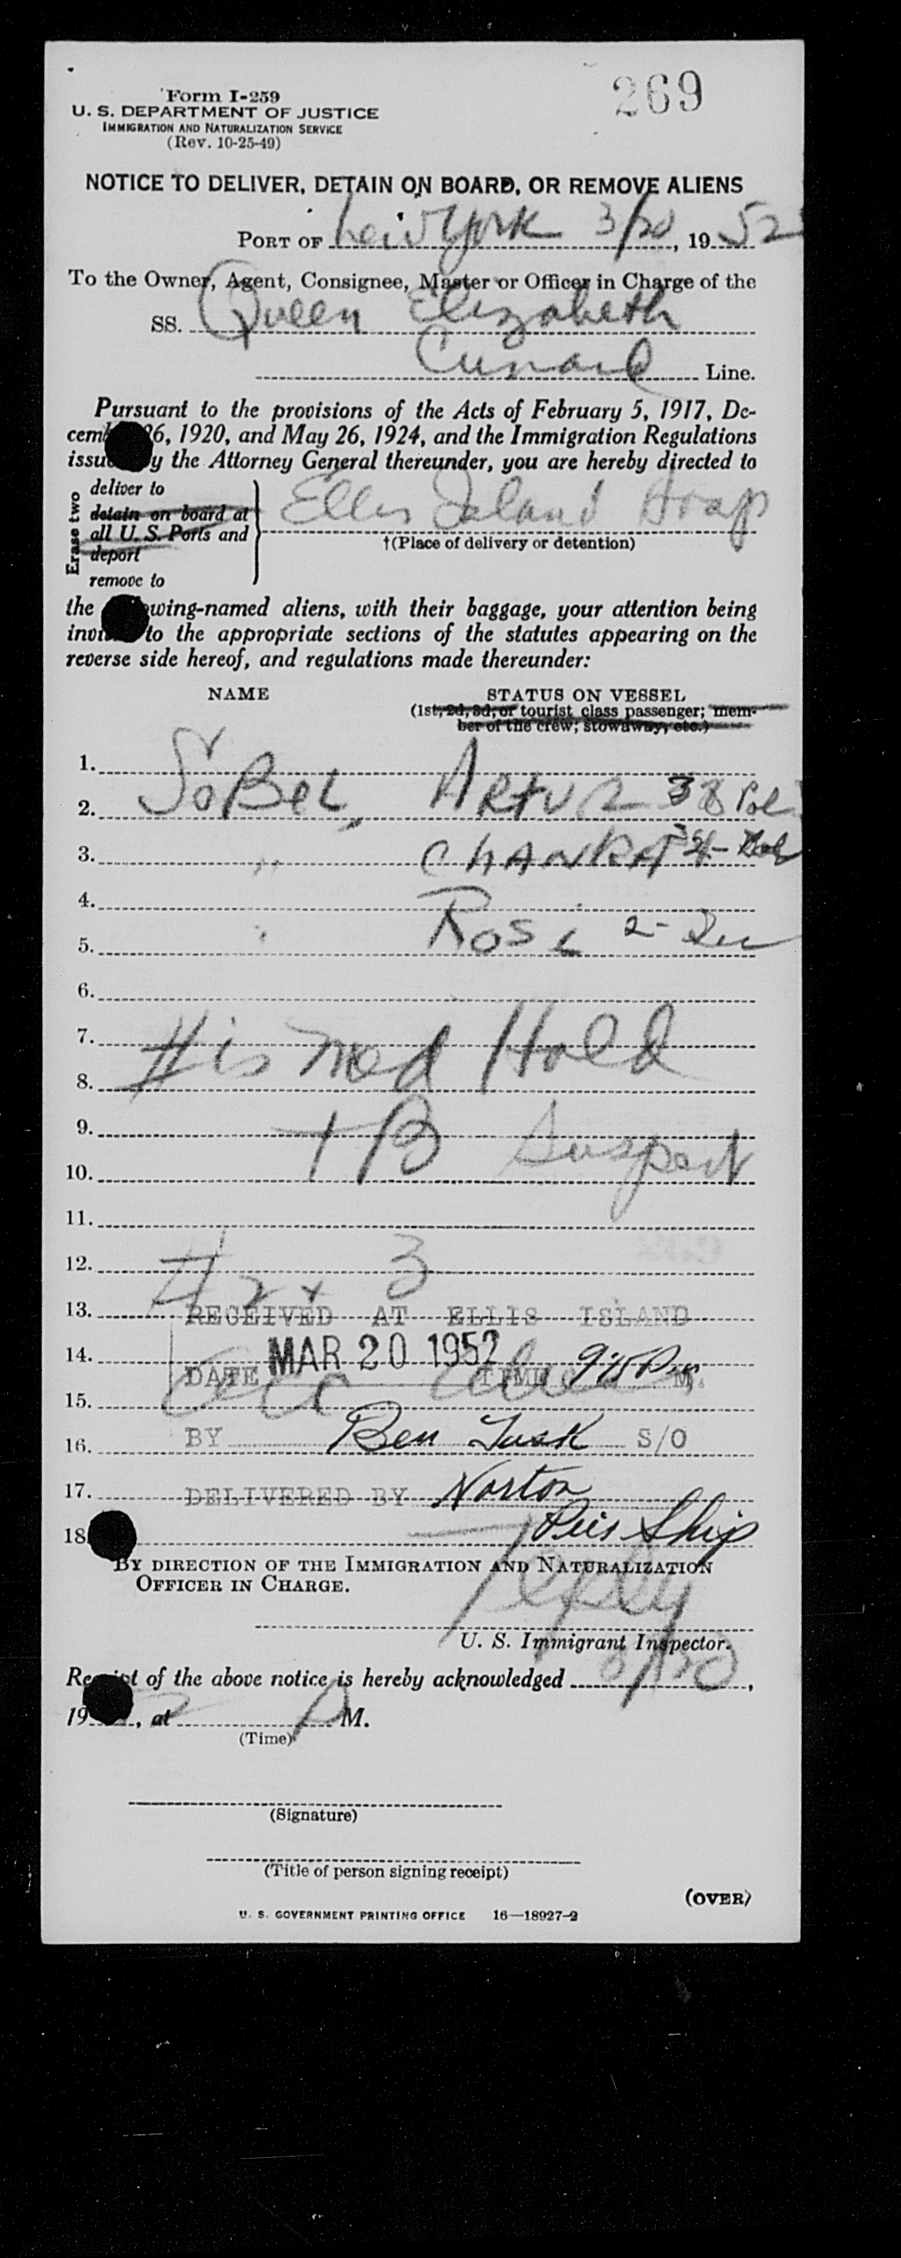 269
Form I-259
U. S. DEPARTMENT OF JUSTICE
IMMIGRATION AND NATURALIZATION SERVICE
(Rev. 10-25-49)
NOTICE TO DELIVER, DETAIN ON BOARD, OR REMOVE ALIENS
PORT OF New York 3/20, 1952
To the Owner, Agent, Consignee, Master or Officer in Charge of the
SS. Queen Elizabeth
Cunard Line.
Pursuant to the provisions of the Acts of February 5, 1917, De-
cem 26, 1920, and May 26, 1924, and the Immigration Regulations
issu y the Attorney General thereunder, you are hereby directed to
Erase two
deliver to
detain on board at
all U. S. Ports and
deport
remove to
Ellis Island Hosp
†(Place of delivery or detention)
the wing-named aliens, with their baggage, your attention being
invi to the appropriate sections of the statutes appearing on the
reverse side hereof, and regulations made thereunder:
NAME STATUS ON VESSEL
(1st, 2d, 3d, or tourist class passenger; mem-
ber of the crew; stowaway, etc.)
1.
2. SoBeL, ARTUR 38 Pol
3. " CHANKA 34 -
4.
5. " Rosi 2 -
6.
7.
8. #1 is Med Hold
9.
10. TB Suspect
11.
12. #2 + 3
13. RECEIVED AT ELLIS ISLAND
14. DATE MAR 20 1952 TIME 945 P M.
15.
16. BY Ben Tusk S/O
17. DELIVERED BY Norton
18. Pier Ship
BY DIRECTION OF THE IMMIGRATION AND NATURALIZATION
OFFICER IN CHARGE.
U. S. Immigrant Inspector.
Receipt of the above notice is hereby acknowledged 3/20,
19 2, at P M.
(Time)
(Signature)
(Title of person signing receipt)
(OVER)
U. S. GOVERNMENT PRINTING OFFICE 16—18927-2